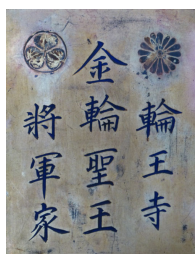 輪王寺
金輪聖王
將軍家